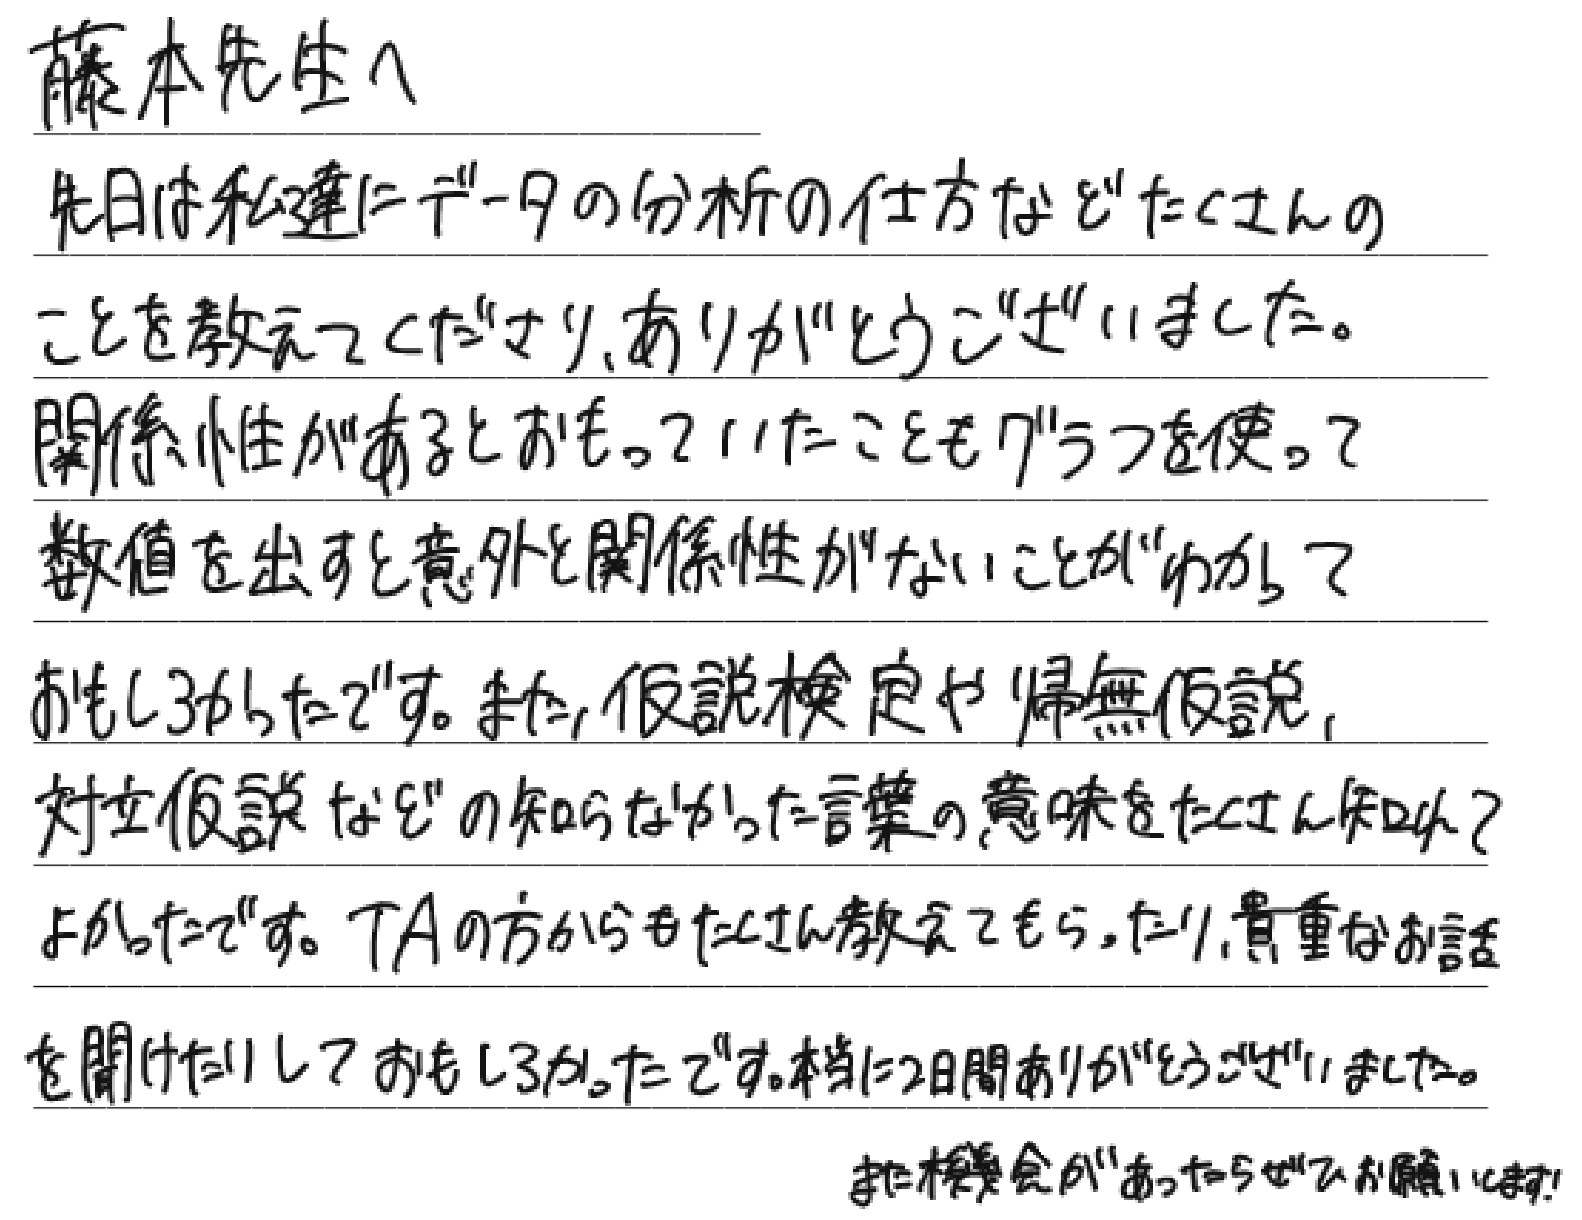 藤本先生へ
先日は私達にデータの分析の仕方などたくさんの
ことを教えてくださり、ありがとうございました。
関係性があるとおもっていたこともグラフを使って
数値を出すと意外と関係性がないことがわかって
おもしろかったです。また、仮説検定や帰無仮説、
対立仮説などの知らなかった言葉の意味をたくさん知れて
よかったです。TAの方からもたくさん教えてもらったり、貴重なお話
を聞けたりしておもしろかったです。本当に2日間ありがとうございました。
また機会があったらぜひお願いします!